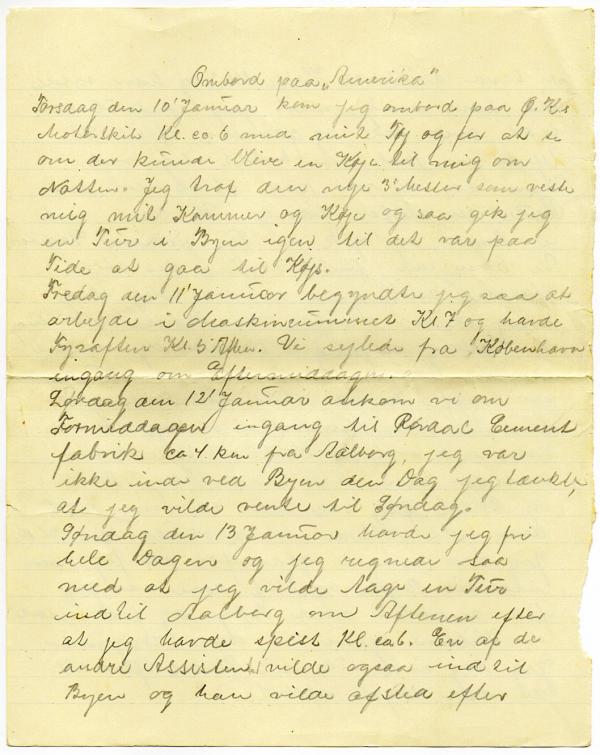 Ombord paa „Amerika"
Torsdag den 10' Januar kom jeg ombord paa Ø. K.s
Motorskib Kl. ca. 6 med mit Tøj og for at se
om der kunde blive en Køje til mig om
Natten. Jeg traf den nye 3' Mester som viste
mig mit Kammer og Køje og saa gik jeg
en Tur i Byen igen til det var paa
Tide at gaa til Køjs.
Fredag den 11' Januar begyndte jeg saa at
arbejde i Maskinrummet Kl. 7 og havde
Fyraften Kl. 5 Aften. Vi sejlede fra København
engang om Eftermiddagen.
Lørdag den 12' Januar ankom vi om
Formiddagen engang til Rørdal Cement
fabrik ca 4 km fra Aalborg, jeg var
ikke inde ved Byen den Dag jeg tænkte,
at jeg vilde vente til Søndag.
Søndag den 13 Januar havde jeg fri
hele Dagen og jeg regnede saa
med at jeg vilde tage en Tur
ind til Aalborg om Aftenen efter
at jeg havde spist Kl. ca 6. En af de
andre Assistent vilde ogsaa ind til
Byen og han vilde afsted efter